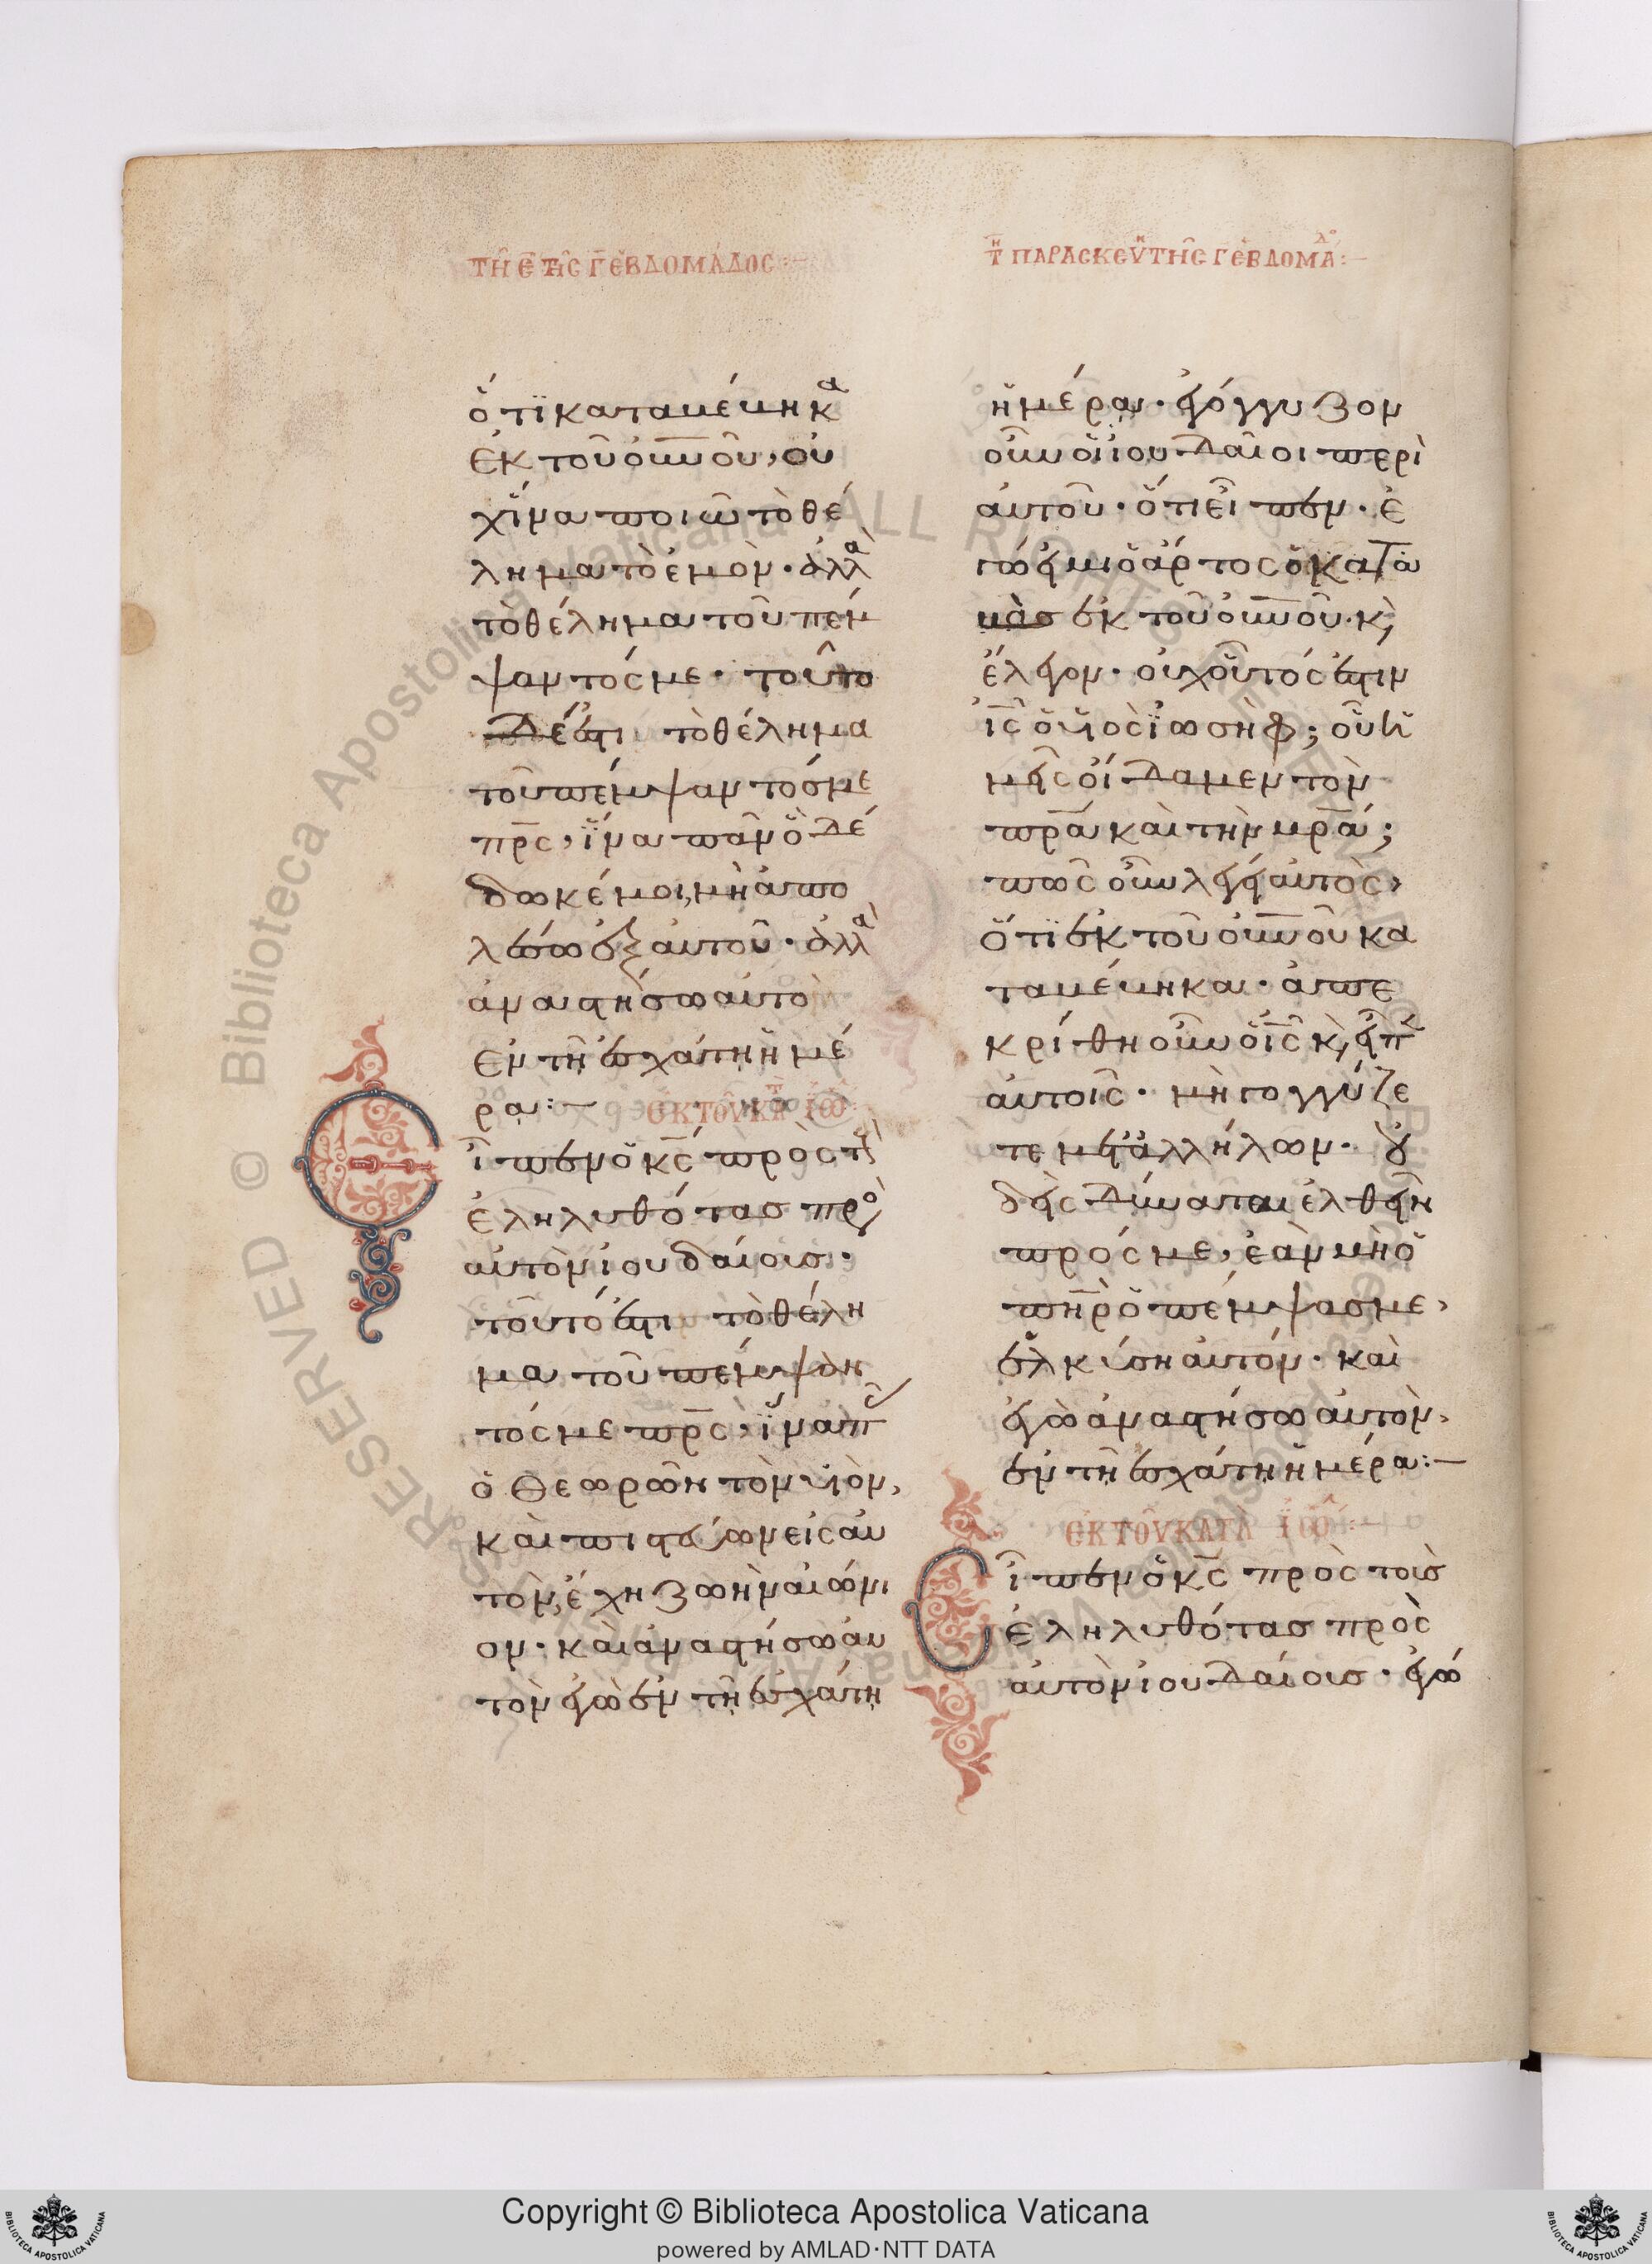 ΤΗ Ε ΤΗΣ Γ ΕΒΔΟΜΑΔΟΣ:—
ὅτι καταβέβηκα
ἐκ τοῦ οὐνοῦ, οὐ
χ ἵνα ποιῶ τὸ θέ
λημα τὸ ἐμὸν· ἀλλὰ
τὸ θέλημα τοῦ πέμ
ψαντός με· τοῦτο
δέ ἐστι τὸ θέλημα
τοῦ πέμψαντόσ με
πρς, ἵνα πᾶν ὃ δέ
δωκέ μοι, μὴ ἀπο
λέσω ἐξ αὐτοῦ· ἀλλὰ
ἀναστήσω αὐτὸ
ἐν τῆ ἐσχάτη ἡμέ
ρα:— ΕΚ ΤΟΥ ΚΑΤ ΙΩ
Εἶπεν ὁ κς πρὸς τοὺς
ἐληλυθότασ πρὸ
αὐτὸν ἰουδαίουσ·
τοῦτό ἐστι τὸ θέλη
μα τοῦ πέμψαν
τός με πρς, ἵνα πᾶς
ὁ θεωρῶν τὸν υἱὸν,
καὶ πιστεύων εἰς αὐ
τὸν, ἔχη ζωὴν αἰώνι
ον· καὶ ἀναστήσω αὐ
τὸν ἐγὼ ἐν τῆ ἐσχάτη
Τῌ ΠΑΡΑΣΚΕΥ ΤΗΣ Γ ΕΒΔΟΜΑΔΟ:—
ἡμέρα· ἐγόγγυζον
οὖν οἱ ἰουδαῖοι περὶ
αὐτοῦ· ὅτι εἶπεν· ἐ
γώ εἰμι ὁ ἄρτος ὁ κατα
βὰσ ἐκ τοῦ οὐνοῦ· κὶ
ἔλεγον· οὐχ οὗτός ἐστιν
ις ὁ υἱὸς ἰωσὴφ; οὗ ἡ
μεῖς οἴδαμεν τὸν
πρα καὶ τὴν μρα;
πῶς οὖν λέγει αὐτὸς,
ὅτι ἐκ τοῦ οὐνοῦ κα
ταβέβηκα· ἀπε
κρίθη οὖν ὁ ις κὶ εἶπεν
αὐτοῖς· μὴ γογγύζε
τε μετ ἀλλήλων· οὐ
δεὶς δύναται ἐλθεῖν
πρός με, ἐὰν μὴ ὁ
πηρ ὁ πέμψασ με,
ἑλκύση αὐτόν· καὶ
ἐγὼ ἀναστήσω αὐτὸν,
ἐν τῆ ἐσχάτη ἡμέρα:—
ΕΚ ΤΟΥ ΚΑΤΑ ΙΩ:—
Εἶπεν ὁ κς πρὸς τοὺσ
ἐληλυθότασ πρὸς
αὐτὸν ἰουδαίουσ· ἐγώ
Copyright © Biblioteca Apostolica Vaticana
powered by AMLAD·NTT DATA
© Biblioteca Apostolica Vaticana ALL RIGHTS RESERVED